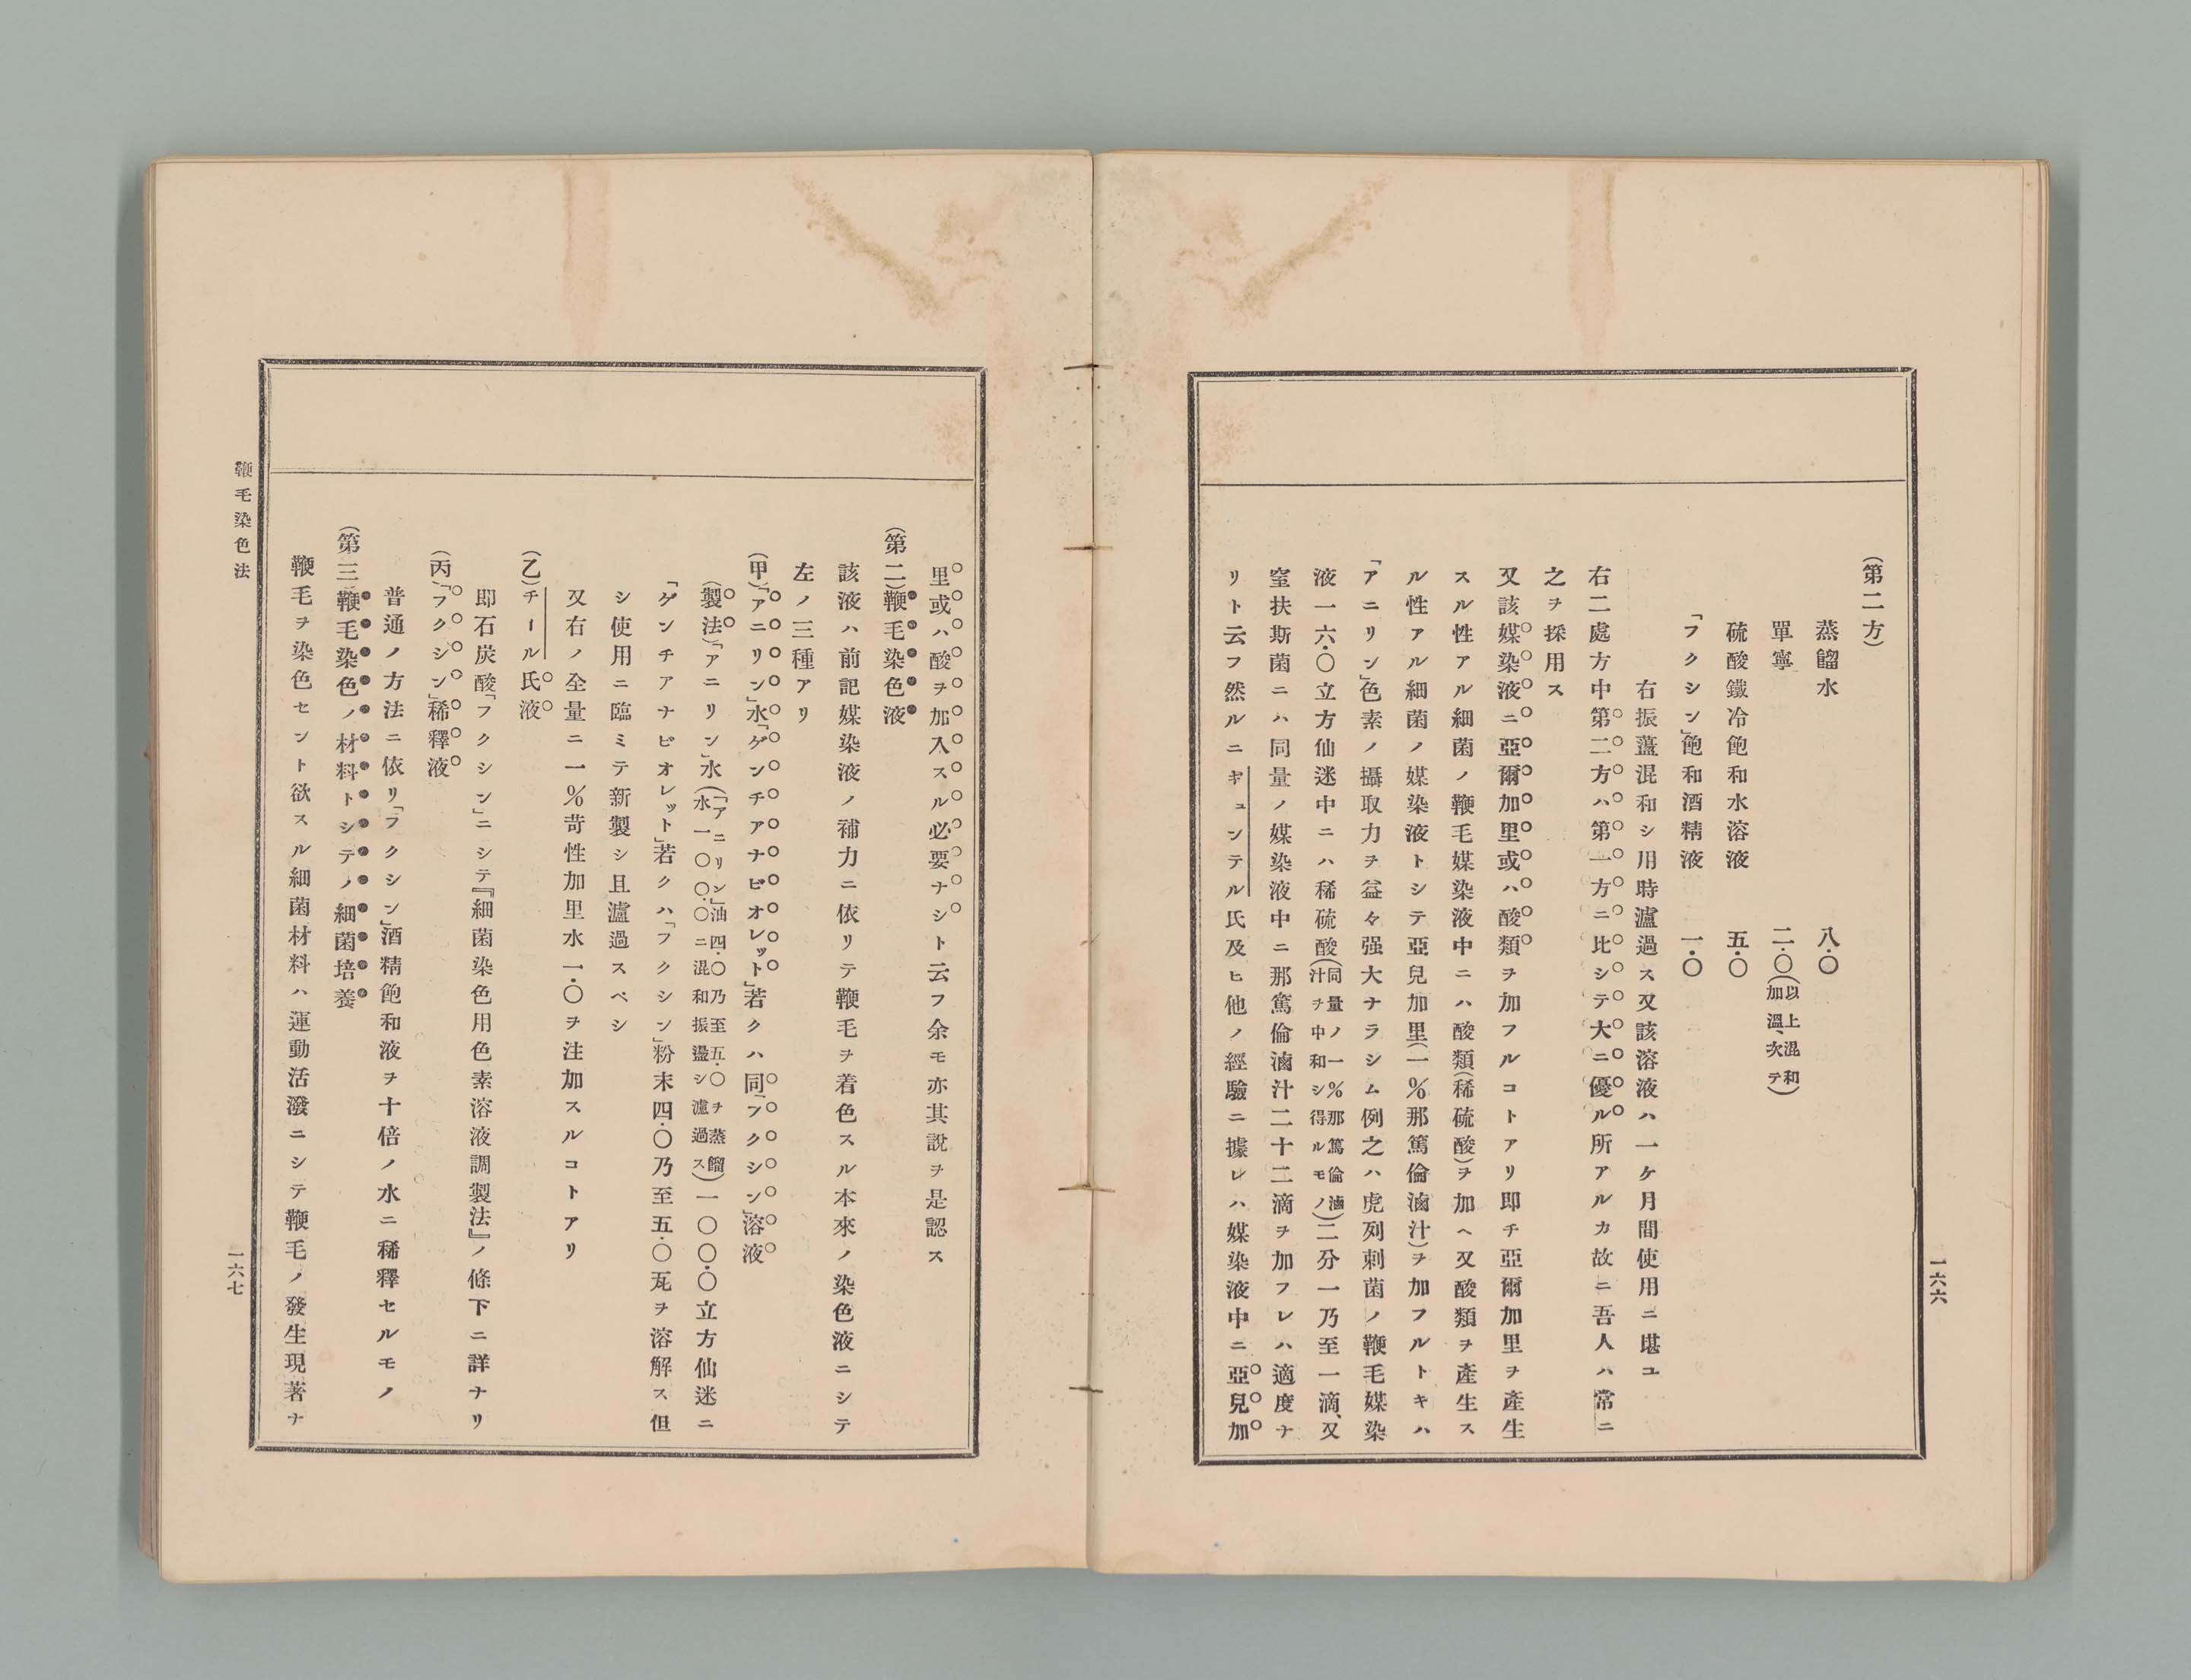 (第二方)
蒸餾水　八・〇
單寧　二・〇(以上混和加溫、次テ)
硫酸鐵冷飽和水溶液　五・〇
「フクシン」飽和酒精液　一・〇
右振盪混和シ用時濾過ス又該溶液ハ一ケ月間使用ニ堪ユ
右二處方中第二方ハ第一方ニ比シテ大ニ優ル所アルカ故ニ吾人ハ常ニ
之ヲ採用ス
又該媒染液ニ亞爾加里或ハ酸類ヲ加フルコトアリ即チ亞爾加里ヲ產生
スル性アル細菌ノ鞭毛媒染液中ニハ酸類(稀硫酸)ヲ加ヘ又酸類ヲ產生ス
ル性アル細菌ノ媒染液トシテ亞兒加里(一%那篤倫滷汁)ヲ加フルトキハ
「アニリン」色素ノ攝取力ヲ益々强大ナラシム例之ハ虎列剌菌ノ鞭毛媒染
液一六・〇立方仙迷中ニハ稀硫酸(同量ノ一%那篤倫滷汁ヲ中和シ得ルモノ)二分一乃至一滴、又
窒扶斯菌ニハ同量ノ媒染液中ニ那篤倫滷汁二十二滴ヲ加フレハ適度ナ
リト云フ然ルニキュンテル氏及ヒ他ノ經驗ニ據レハ媒染液中ニ亞兒加
一六六
里或ハ酸ヲ加入スル必要ナシト云フ余モ亦其說ヲ是認ス
(第二)鞭毛染色液
該液ハ前記媒染液ノ補力ニ依リテ鞭毛ヲ着色スル本來ノ染色液ニシテ
左ノ三種アリ
(甲)「アニリン」水「ゲンチアナビオレット」若クハ同「フクシン」溶液
(製法)「アニリン」水(「アニリン」油四・〇乃至五・〇ヲ蒸餾水一〇〇・〇ニ混和振盪シ濾過ス)一〇〇・〇立方仙迷ニ
「ゲンチアナビオレット」若クハ「フクシン」粉末四・〇乃至五・〇瓦ヲ溶解ス但
シ使用ニ臨ミテ新製シ且濾過スベシ
又右ノ全量ニ一%苛性加里水一・〇ヲ注加スルコトアリ
(乙)チール氏液
即石炭酸「フクシン」ニシテ『細菌染色用色素溶液調製法』ノ條下ニ詳ナリ
(丙)「フクシン」稀釋液
普通ノ方法ニ依リ「フクシン」酒精飽和液ヲ十倍ノ水ニ稀釋セルモノ
(第三)鞭毛染色ノ材料トシテノ細菌培養
鞭毛ヲ染色セント欲スル細菌材料ハ運動活潑ニシテ鞭毛ノ發生現著ナ
鞭毛染色法
一六七